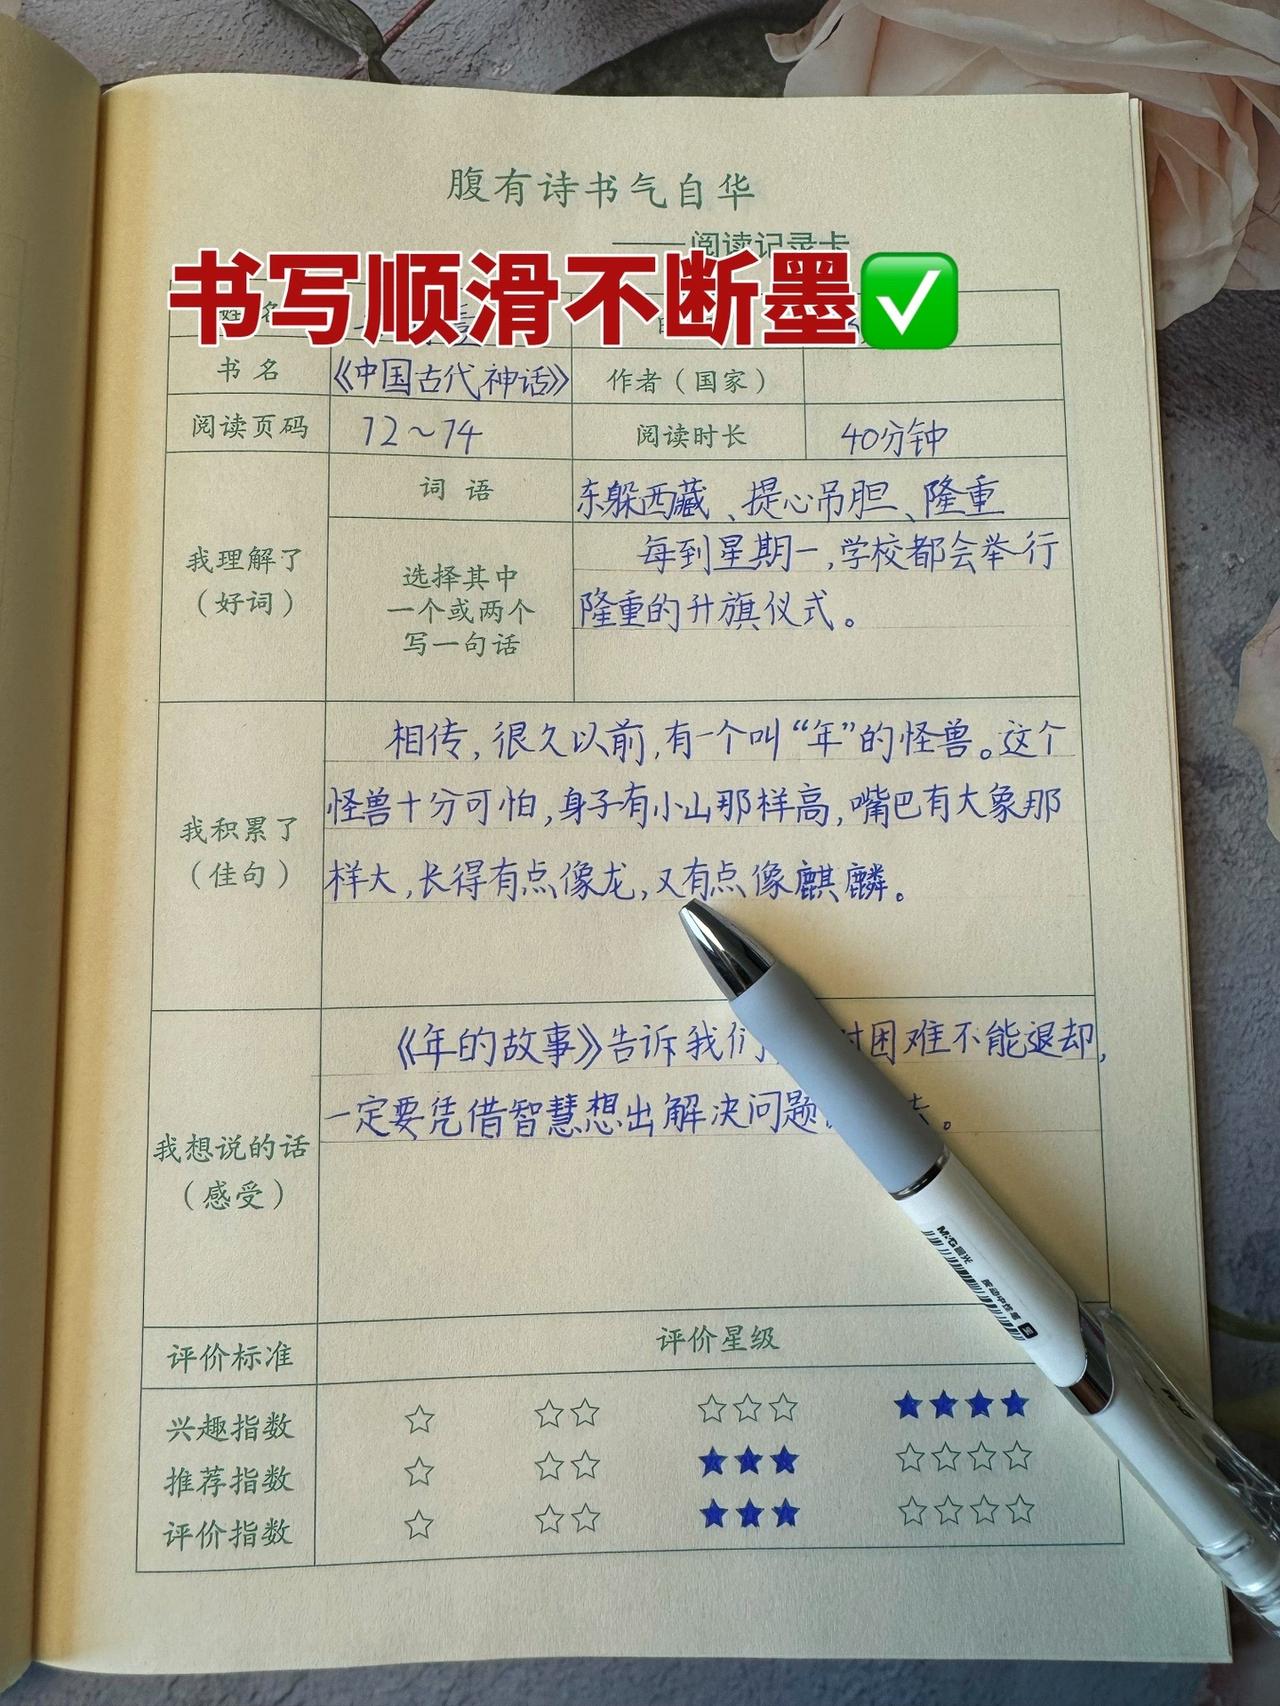 腹有诗书气自华
——阅读记录卡
书写顺滑不断墨✅
姓名
书名 《中国古代神话》 作者（国家）
阅读页码 72～74 阅读时长 40分钟
我理解了（好词）
词语 东躲西藏、提心吊胆、隆重
选择其中
一个或两个
写一句话
每到星期一,学校都会举行
隆重的升旗仪式。
我积累了
（佳句）
相传,很久以前,有一个叫“年”的怪兽。这个
怪兽十分可怕,身子有小山那样高,嘴巴有大象那
样大,长得有点像龙,又有点像麒麟。
我想说的话
（感受）
《年的故事》告诉我们 对困难不能退却,
一定要凭借智慧想出解决问题 。
评价标准 评价星级
兴趣指数 ☆ ☆☆ ☆☆☆ ★★★★
推荐指数 ☆ ☆☆ ★★★ ☆☆☆☆
评价指数 ☆ ☆☆ ★★★ ☆☆☆☆
M&G晨光 按动中性笔